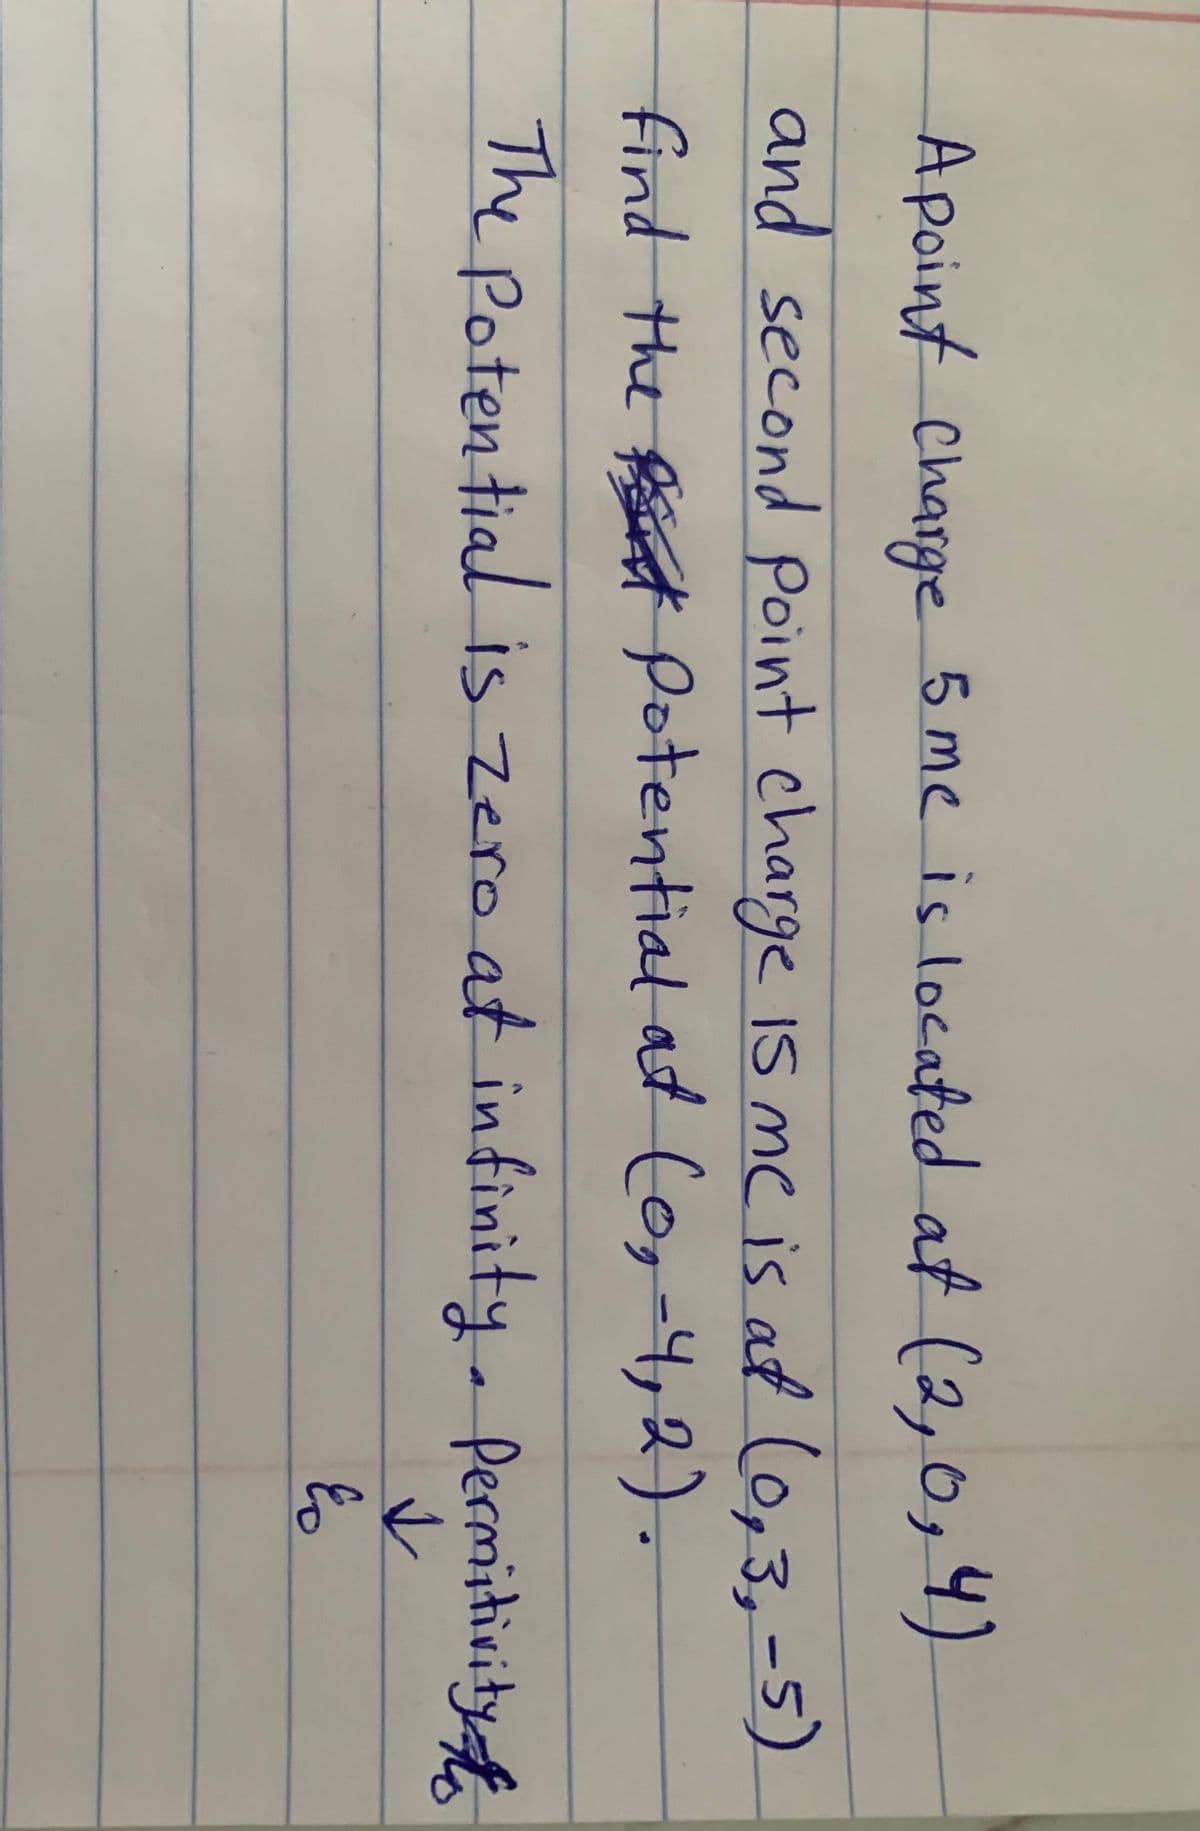 A point charge 5 mc is located at (2, 0, 4)
and second point charge 15 mc is at (0, 3, -5)
find the potential at (0, -4, 2).
The potential is zero at infinity. Permitivity
↓
ε0